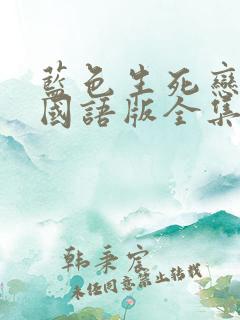 藍色生死戀
國語版全集
韩秉宸
未经同意禁止转载